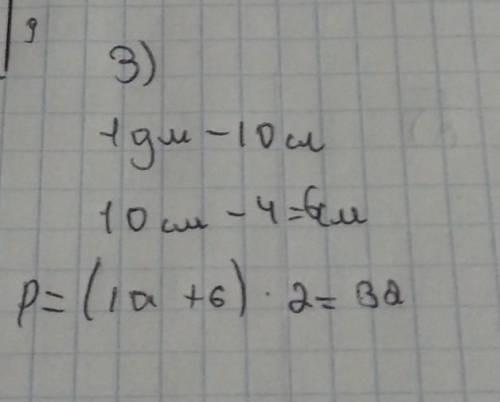 9
3)
1дм - 10см
10см - 4 = 6см
P = (10 + 6) · 2 = 32